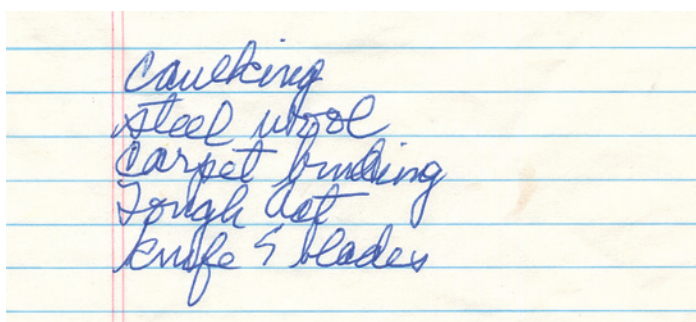 Caulking
steel wool
Carpet binding
Tough Act
knife & blades